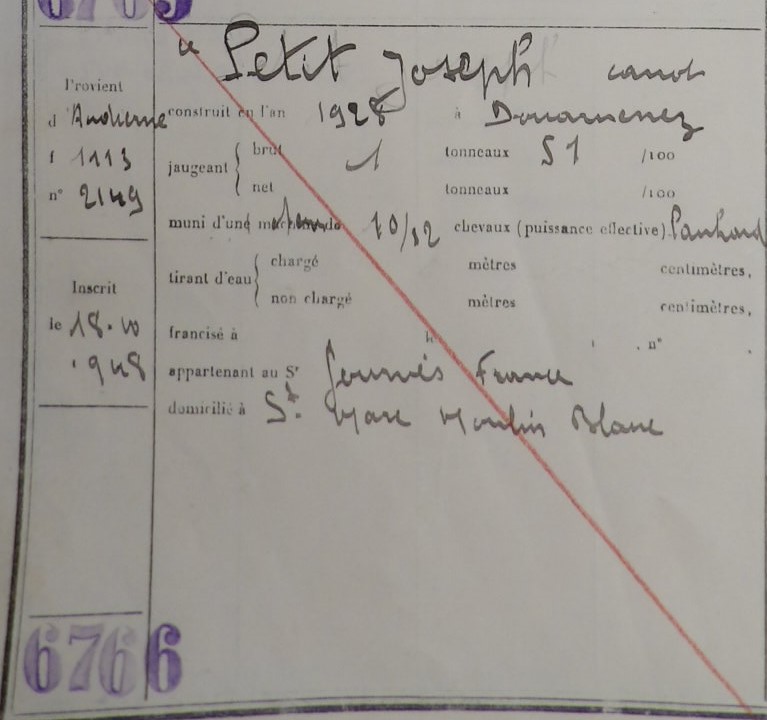 6765
Le Petit Joseph canot
Provient
d'Audierne
f 1113
n° 2149
construit en l'an 1928 à Douarnenez
jaugeant brut 1 tonneaux 51 /100
net tonneaux /100
muni d'une machine de 10/12 chevaux (puissance effective) Panhard
tirant d'eau chargé mètres centimètres,
non chargé mètres centimètres,
Inscrit
le 18.10
.948
francisé à le , n° .
appartenant au Sr France
domicilié à St. Marc Moulin Blanc
6766